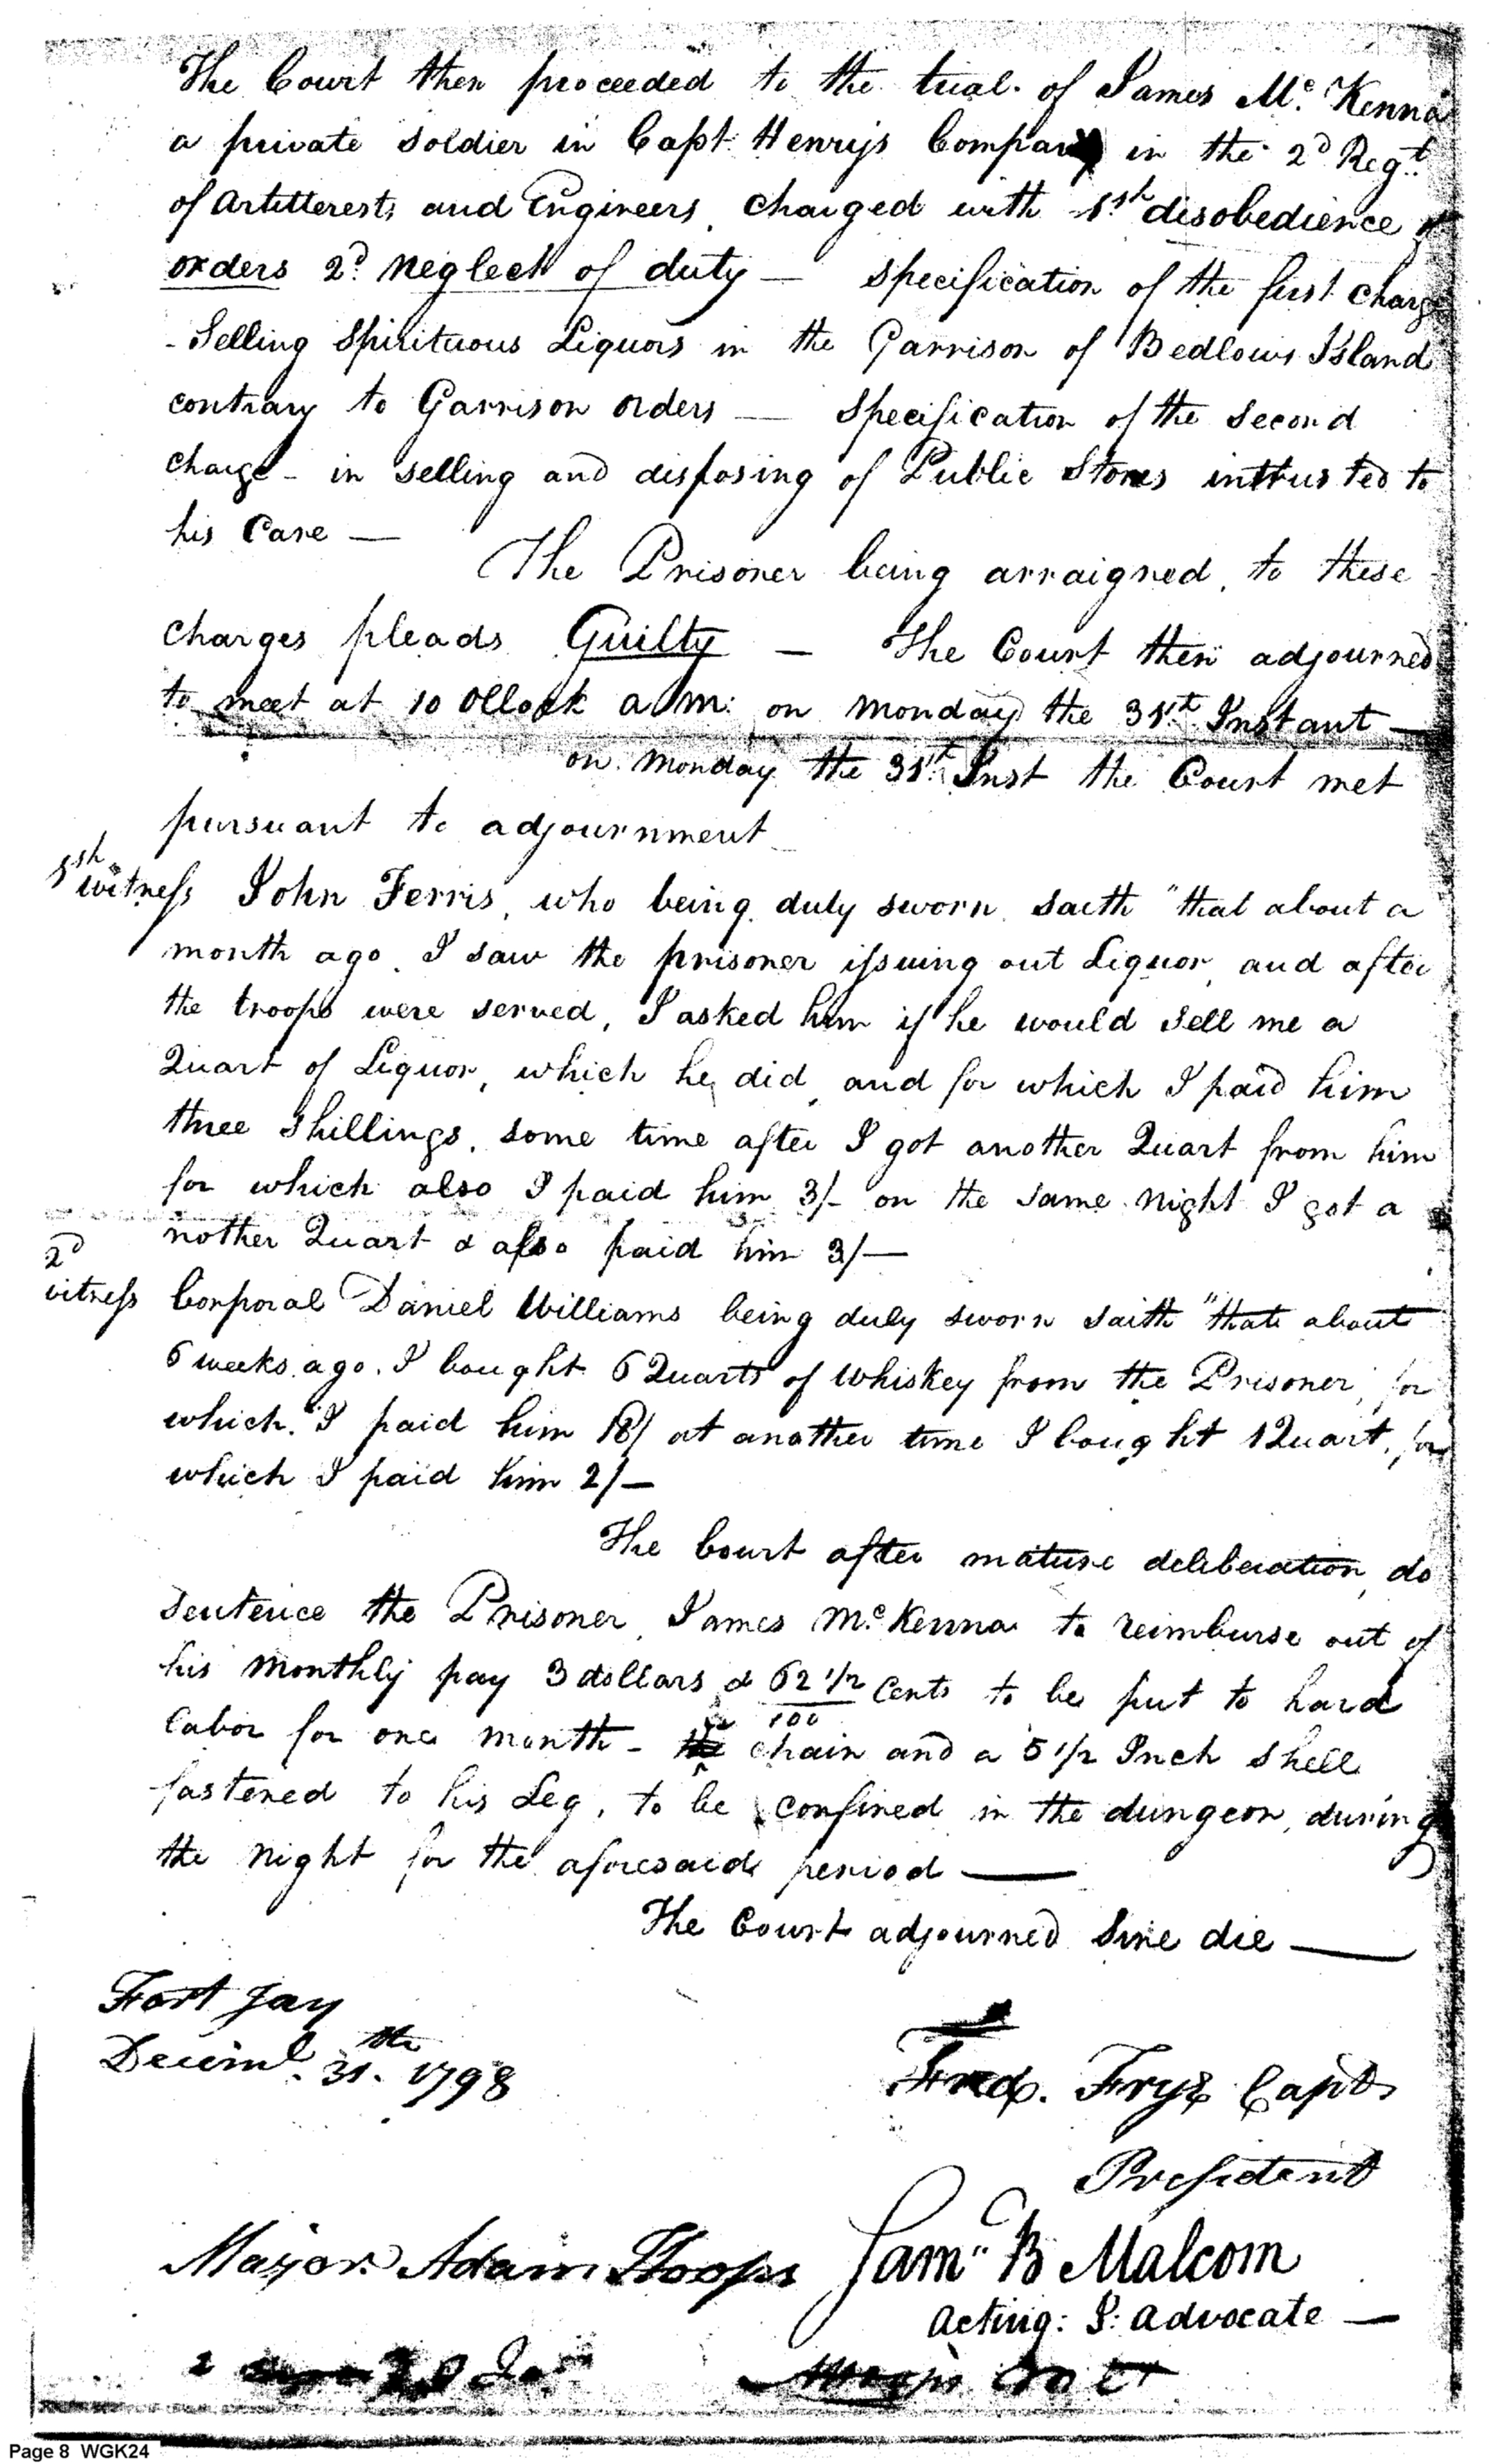 The Court then proceeded to the trial of James Mc. Kenna
a private Soldier in Capt. Henrys Company in the 2d Regt.
of Artillerests and Engineers, charged with 1st disobedience of
orders 2d. Neglect of duty — Specification of the first charge
- Selling Spirituous Liquors in the Garrison of Bedlows Island
contrary to Garrison orders — Specification of the Second
charge - in selling and disposing of Public Stores intrusted to
his Care —
The Prisoner being arraigned, to these
Charges pleads Guilty — The Court then adjourned
to meet at 10 OClock a M: on Monday the 31st Instant —
on Monday the 31st Inst the Court met
pursuant to adjournment
1st
witness John Ferris, who being duly sworn saith "that about a
month ago, I saw the prisoner issuing out Liquor, and after
the troops were served, I asked him if he would sell me a
Quart of Liquor, which he did, and for which I paid him
three shillings, some time after I got another Quart from him
for which also I paid him 3/- on the same night I got a
nother Quart & also paid him 3/—
2d
witness Corporal Daniel Williams being duly sworn saith "that about
6 weeks ago, I bought 6 Quarts of Whiskey from the Prisoner, for
which I paid him 18/ at another time I bought 1 Quart, for
which I paid him 2/—
The Court after mature deliberation, do
Sentence the Prisoner, James Mc. Kenna to reimburse out of
his Monthly pay 3 dollars & 62 1/2/100 Cents to be put to hard
Labor for one month - a chain and a 5 1/2 Inch Shell
fastened to his Leg, to be confined in the dungeon, during
the Night for the aforesaid period —
The Court adjourned Sine die —
Fort Jay
Deceml. 31th. 1798
Fred. Frye Capt
President
Major Adam Hoops
Saml. B Malcom
Acting: J: Advocate —
Page 8 WGK24